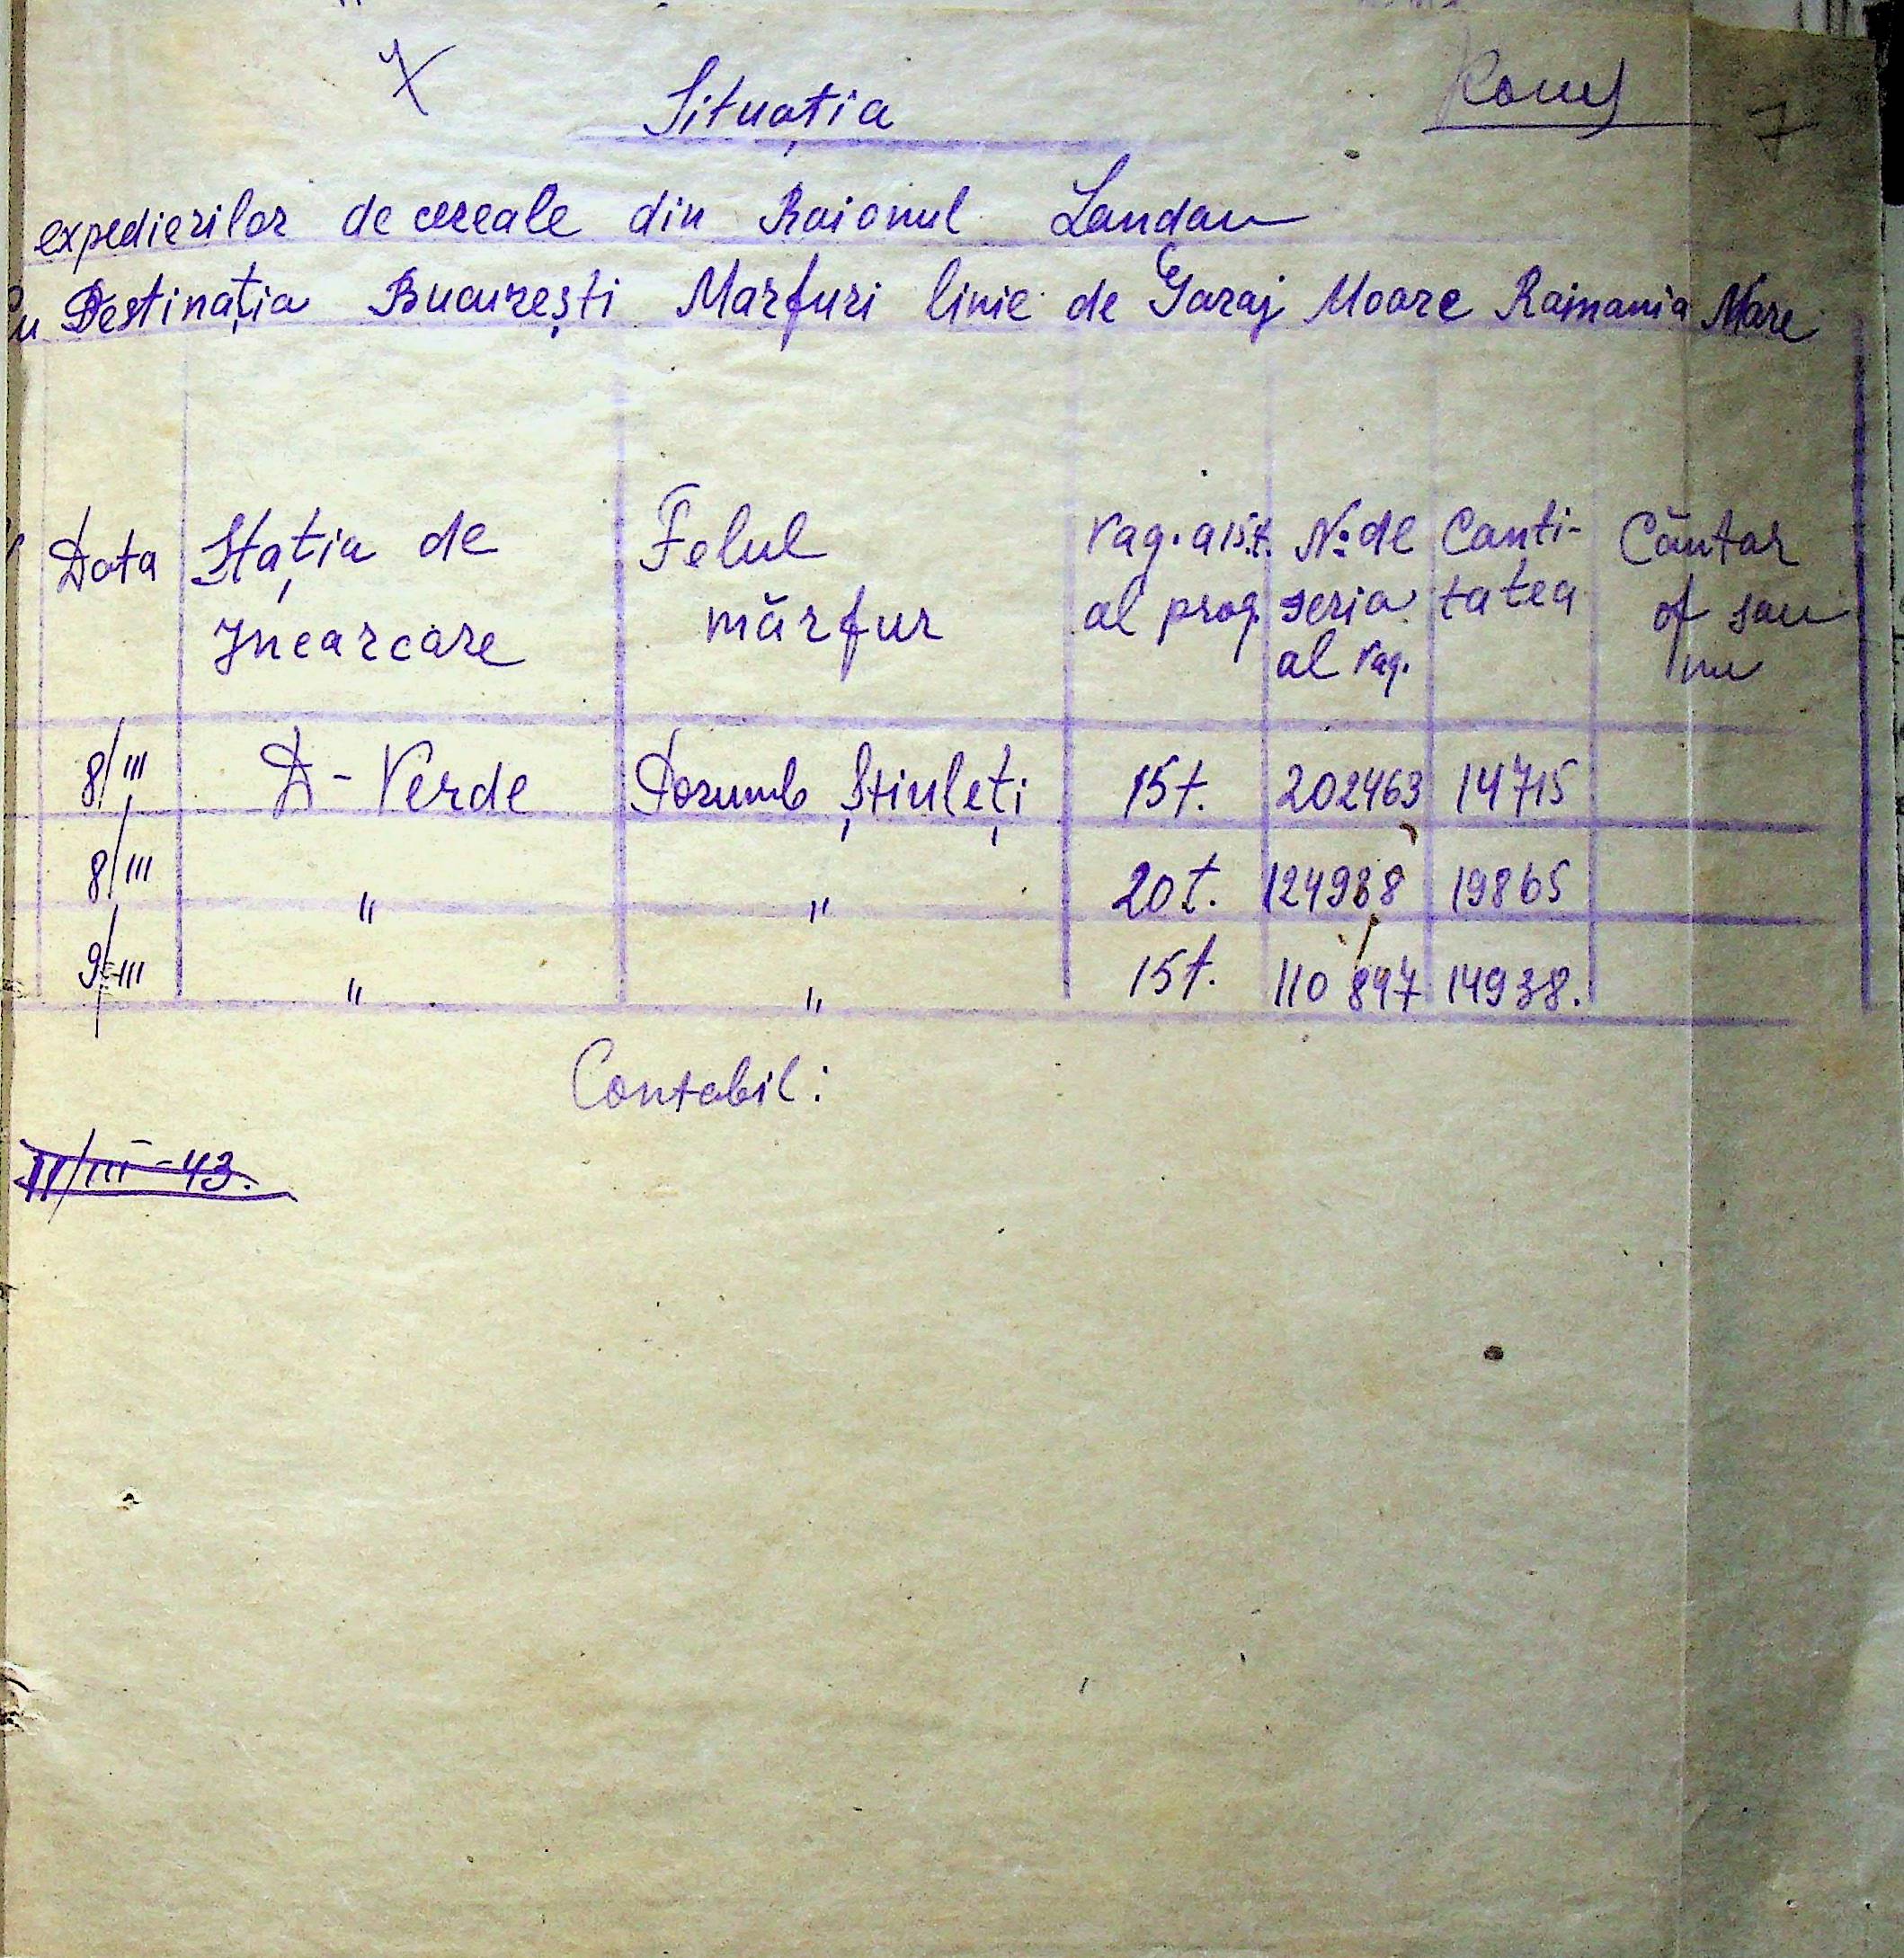 X
Situația
7
expedierilor de cereale din Raionul Landau
cu Destinația București Marfuri linie de Garaj Moare Ramania Mare
Data Stația de Incarcare Felul mărfur Vag. a 15.t. al prog. No de seria al vag. Canti-tatea Cântar of sau nu
8/III D-Verde Porumb Știuleți 15t. 202463 14715
8/III " " 20t. 124988 19865
9/III " " 15t. 110847 14938.
Contabil:
11/III-43.